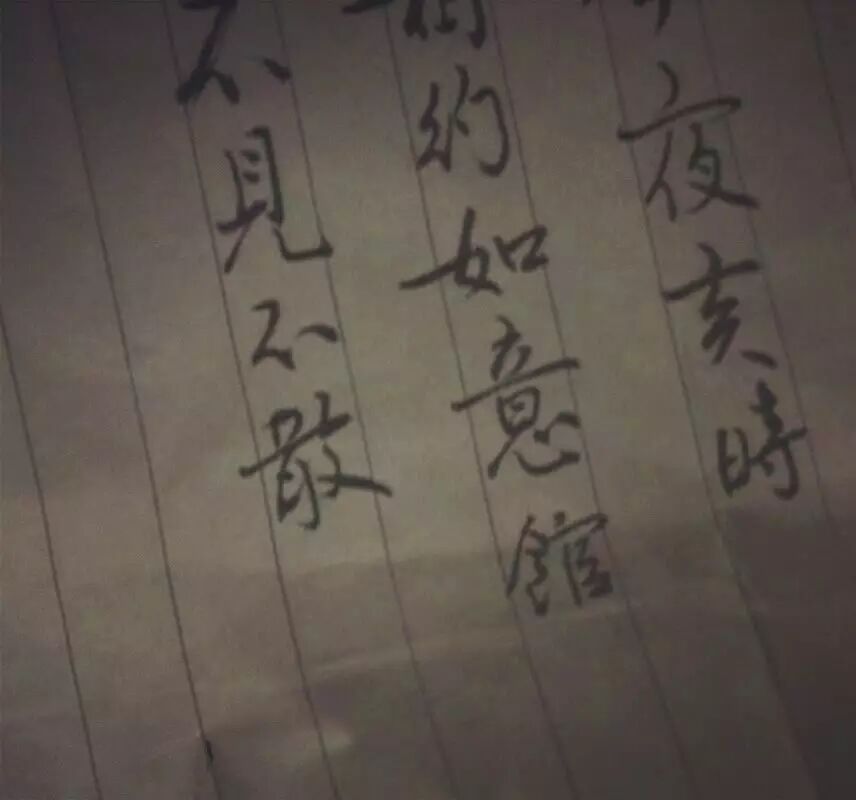 夜亥時
相約如意館
不見不散